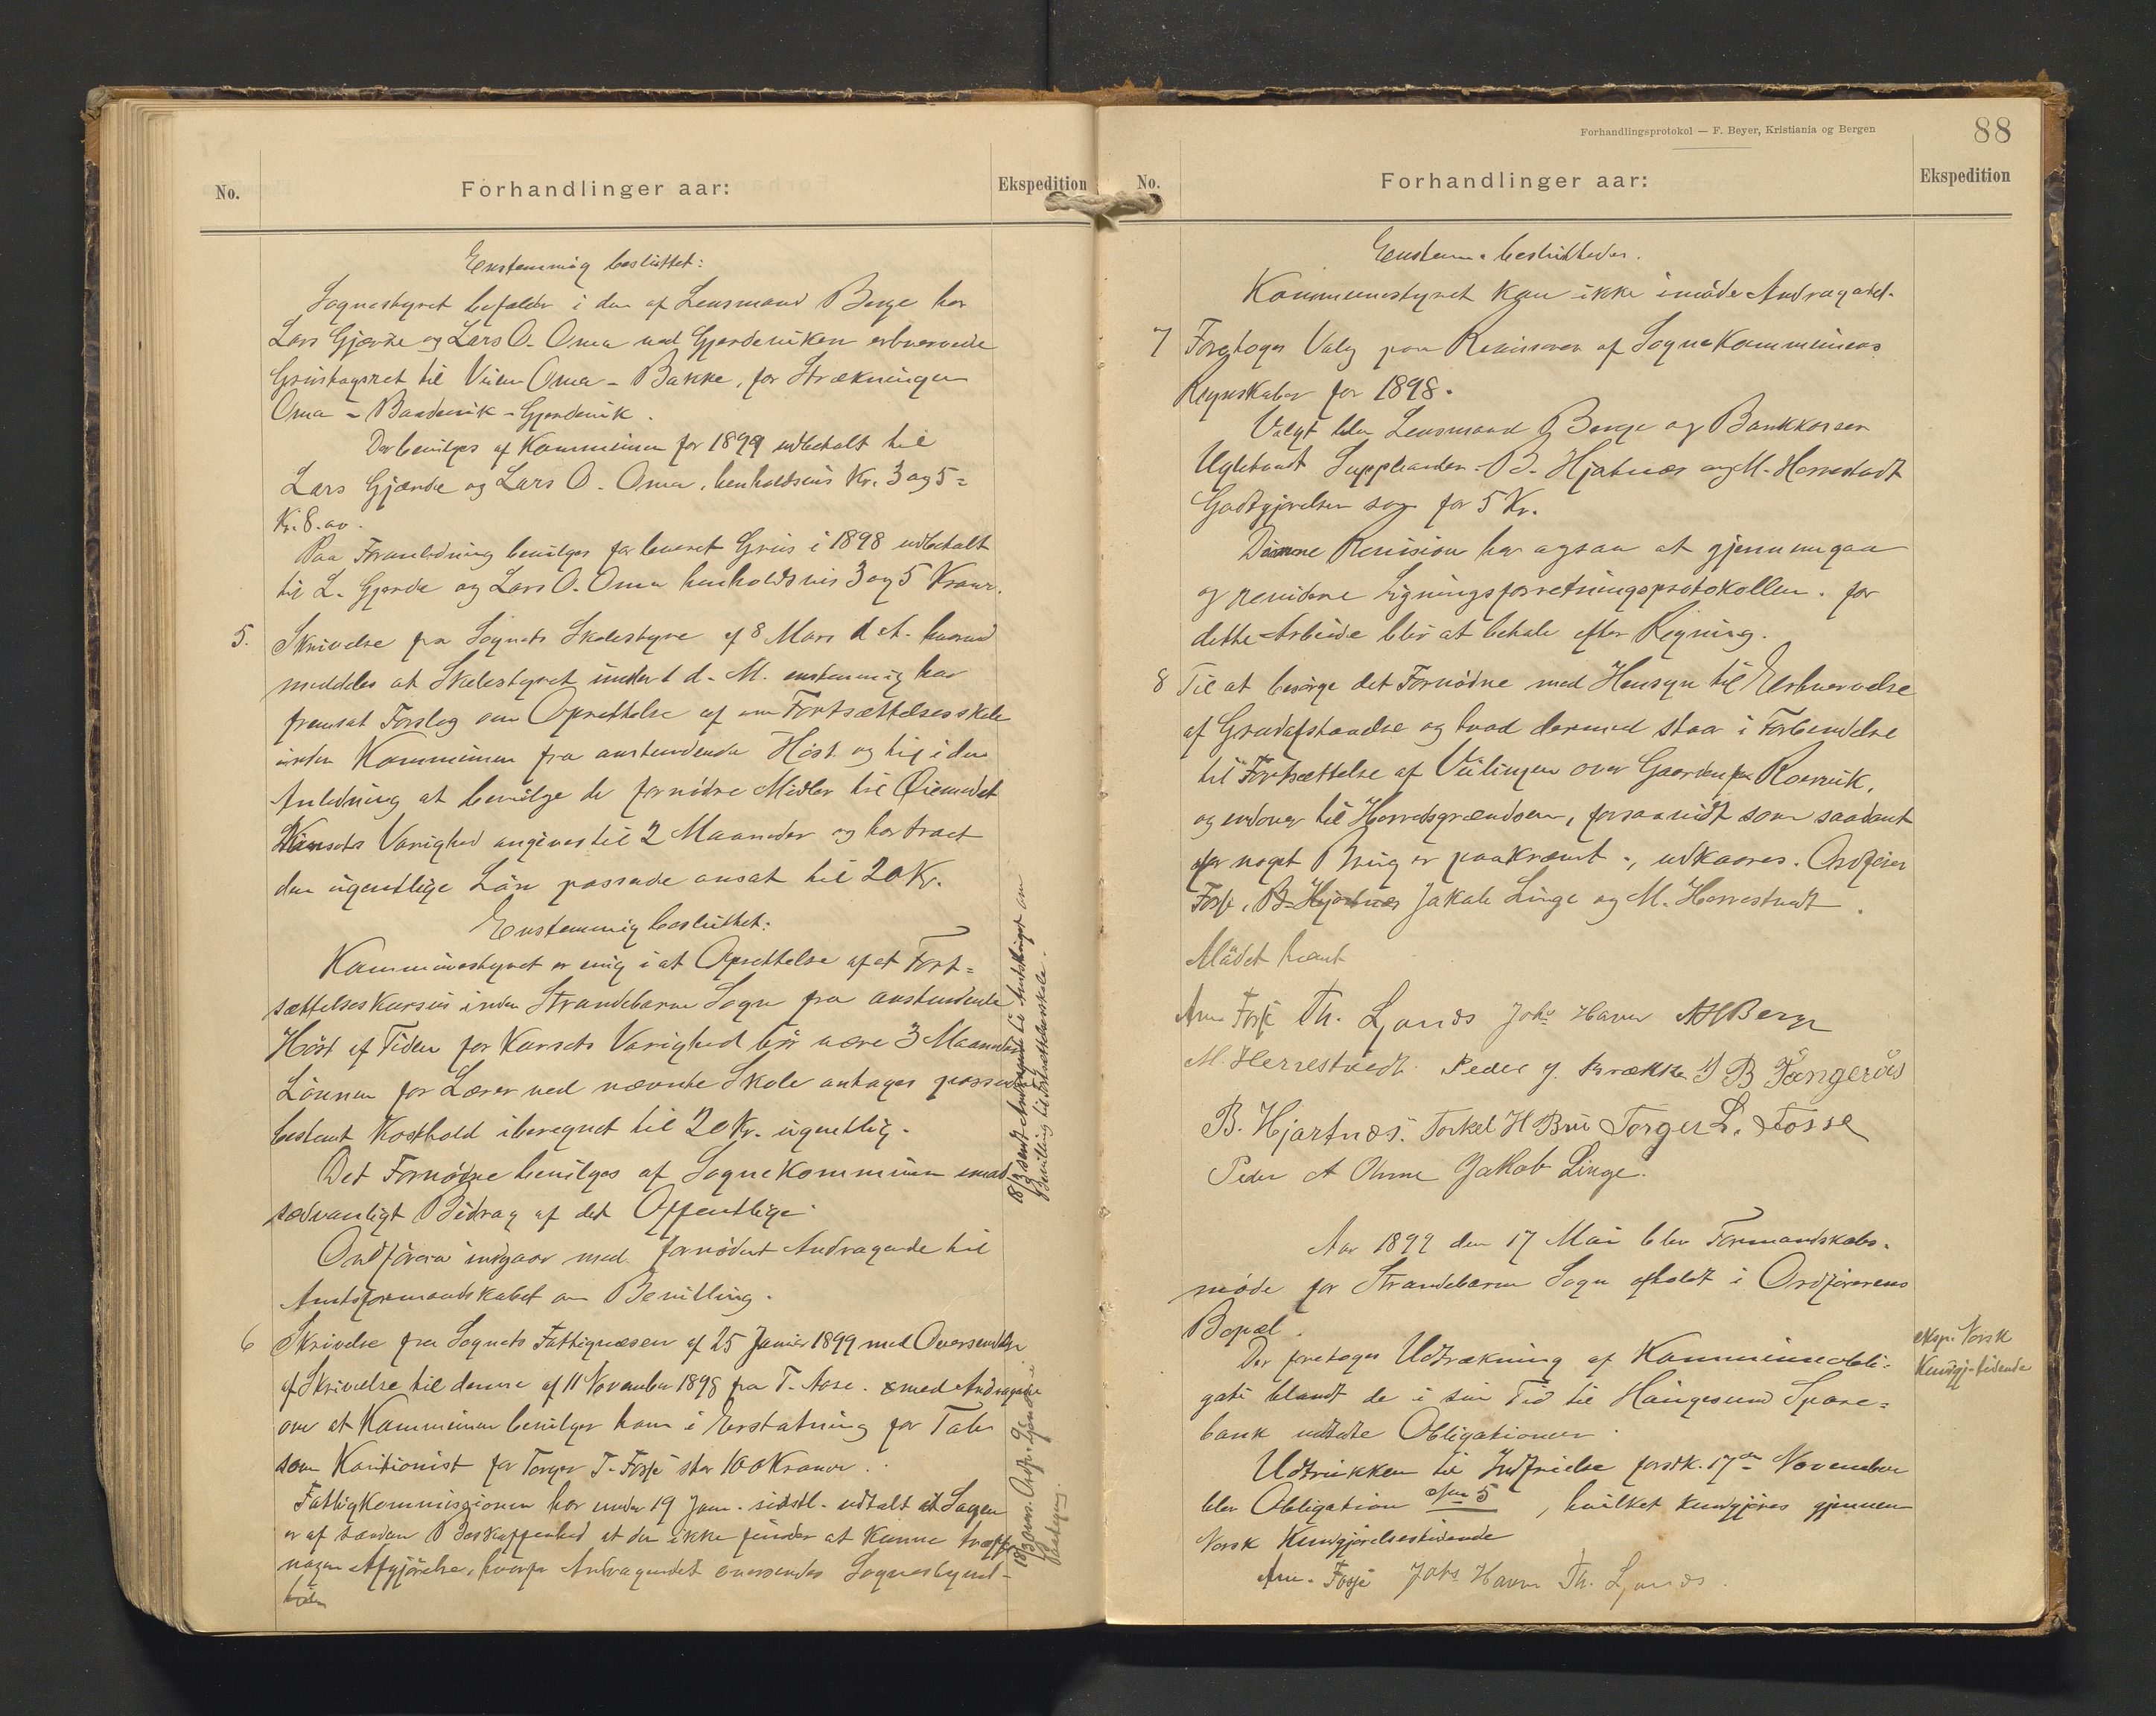 No.
Forhandlinger aar:
Ekspedition
Enstemmig besluttet:
Sognestyret befaldr i den af Lensmand Berge hos
Lars Gjærde og Lars O. Oma ved Gjerdeviken erhvervede
Grustagsret til Veien Oma - Bakke, for Strækningen
Oma - Baardvik - Gjerdevik.
Der bevilges af Kommunen for 1899 udbetalt til
Lars Gjærde og Lars O. Oma, henholdsvis Kr. 3 og 5 =
Kr. 8.00.
Paa Foranledning bevilges for leveret Grus i 1898 udbetalt
til L. Gjerde og Lars O. Oma henholdsvis 3 og 5 Kroner.
5. Skrivelse fra Sognets Skolestyre af 8 Mars d. A. hvorved
meddeles at Skolestyret under 1 d. M. enstemmig har
fremsat Forslag om Oprettelse af en Fortsættelsesskole
inden Kommunen fra anstundende Høst og til i den
Anledning at bevilge de fornødne Midler til Øiemedet
Kursets Varighed angives til 2 Maaneder og har troet
den ugentlige Løn passende ansat til 20 Kr.
Enstemmig besluttet:
Kommunestyret er enig i at Oprettelse af et Fort-
sættelseskursus inden Strandebarm Sogn fra anstundende
Høst af Tiden for Kursets Varighed bør være 3 Maaneder
Lønnen for Lærer ved nævnte Skole antages passende
bestemt Kosthold iberegnet til 20 Kr. ugentlig.
Det Fornødne bevilges af Sognekommunen imod
sædvanligt Bidrag af det Offentlige.
Ordføreren indgaar med fornødent Andragende til
Amtsformandskabet om Bevilling.
18/3 sendt Andragende til Amtstinget om
Bevilling til Fortsættelsesskole.
6 Skrivelse fra Sognets Fattigvæsen af 25 Januar 1899 med Oversendelse
af Skrivelse til denne af 11 November 1898 fra T. Aase med Andragende
om at Kommunen bevilger ham i Erstatning for Tab
som Kautionist for Torger T. Fosse stor 100 Kroner.
Fattigkommissionen har under 19 Jan. sidstl. udtalt at Sagen
er af saadan Beskaffenhed at den ikke finder at kunne træffe
nogen Afgjørelse, hvorfor Andragendet oversendes Sognestyret
18/3 overs. Ordfør.
Paategning.
Forhandlingsprotokol — F. Beyer, Kristiania og Bergen
88
No.
Forhandlinger aar:
Ekspedition
Enstem. besluttedes.
Kommunestyret kan ikke imøde Andragadet.
7 Foretoges Valg paa Revisorer af Sognekommunens
Regnskaber for 1898.
Valgt blev Lensmand Berge og Bankkasser
Uglebundt Suppleanter B. Hjartnæs og M. Herrestvedt
Godtgjørelsen sag for 5 Kr.
Denne Revision har ogsaa at gjennemgaa
og revidere Ligningsforretningsprotokollen. for
dette Arbeide blir at betale efter Regning.
8 Til at besørge det Fornødne med Hensyn til Erhvervelse
af Grundafstaaelse og hvad dermed staar i Forbindelse
til Fortsættelse af Veilinjen over Gaarden Rosvik,
og endover til Herredsgrændsen, forsaavidt som saadant
for noget Brug er paakrævet, udkaares. Ordfører
Fosse, B. Hjartnæs Jakob Linge og M. Herrestvedt.
Mødet hævet
Arne Fosse Th. Ljones Johs Haven AH Berge
M. Herrestvedt Peder J. Brække J B Tangerås
B. Hjartnæs. Torkel H Bru Torger L. Fosse
Peder A Ohme Jakob Linge.
Aar 1899 den 17 Mai blev Formandskabs-
møde for Strandebarm Sogn afholdt i Ordførerens
Bopæl.
Der foretoges Udtrækning af Kommuneobli-
gati blandt de i sin Tid til Haugesund Spare-
bank udstedte Obligationer.
Udtrukken til Indfrielse førstk. 17de November
blev Obligation No 5, hvilket kundgjøres gjennem
Norsk Kundgjørelsestidende
eksp. Norsk
Kundgj. tidende
Arne Fosse Johs Haven Th. Ljones.